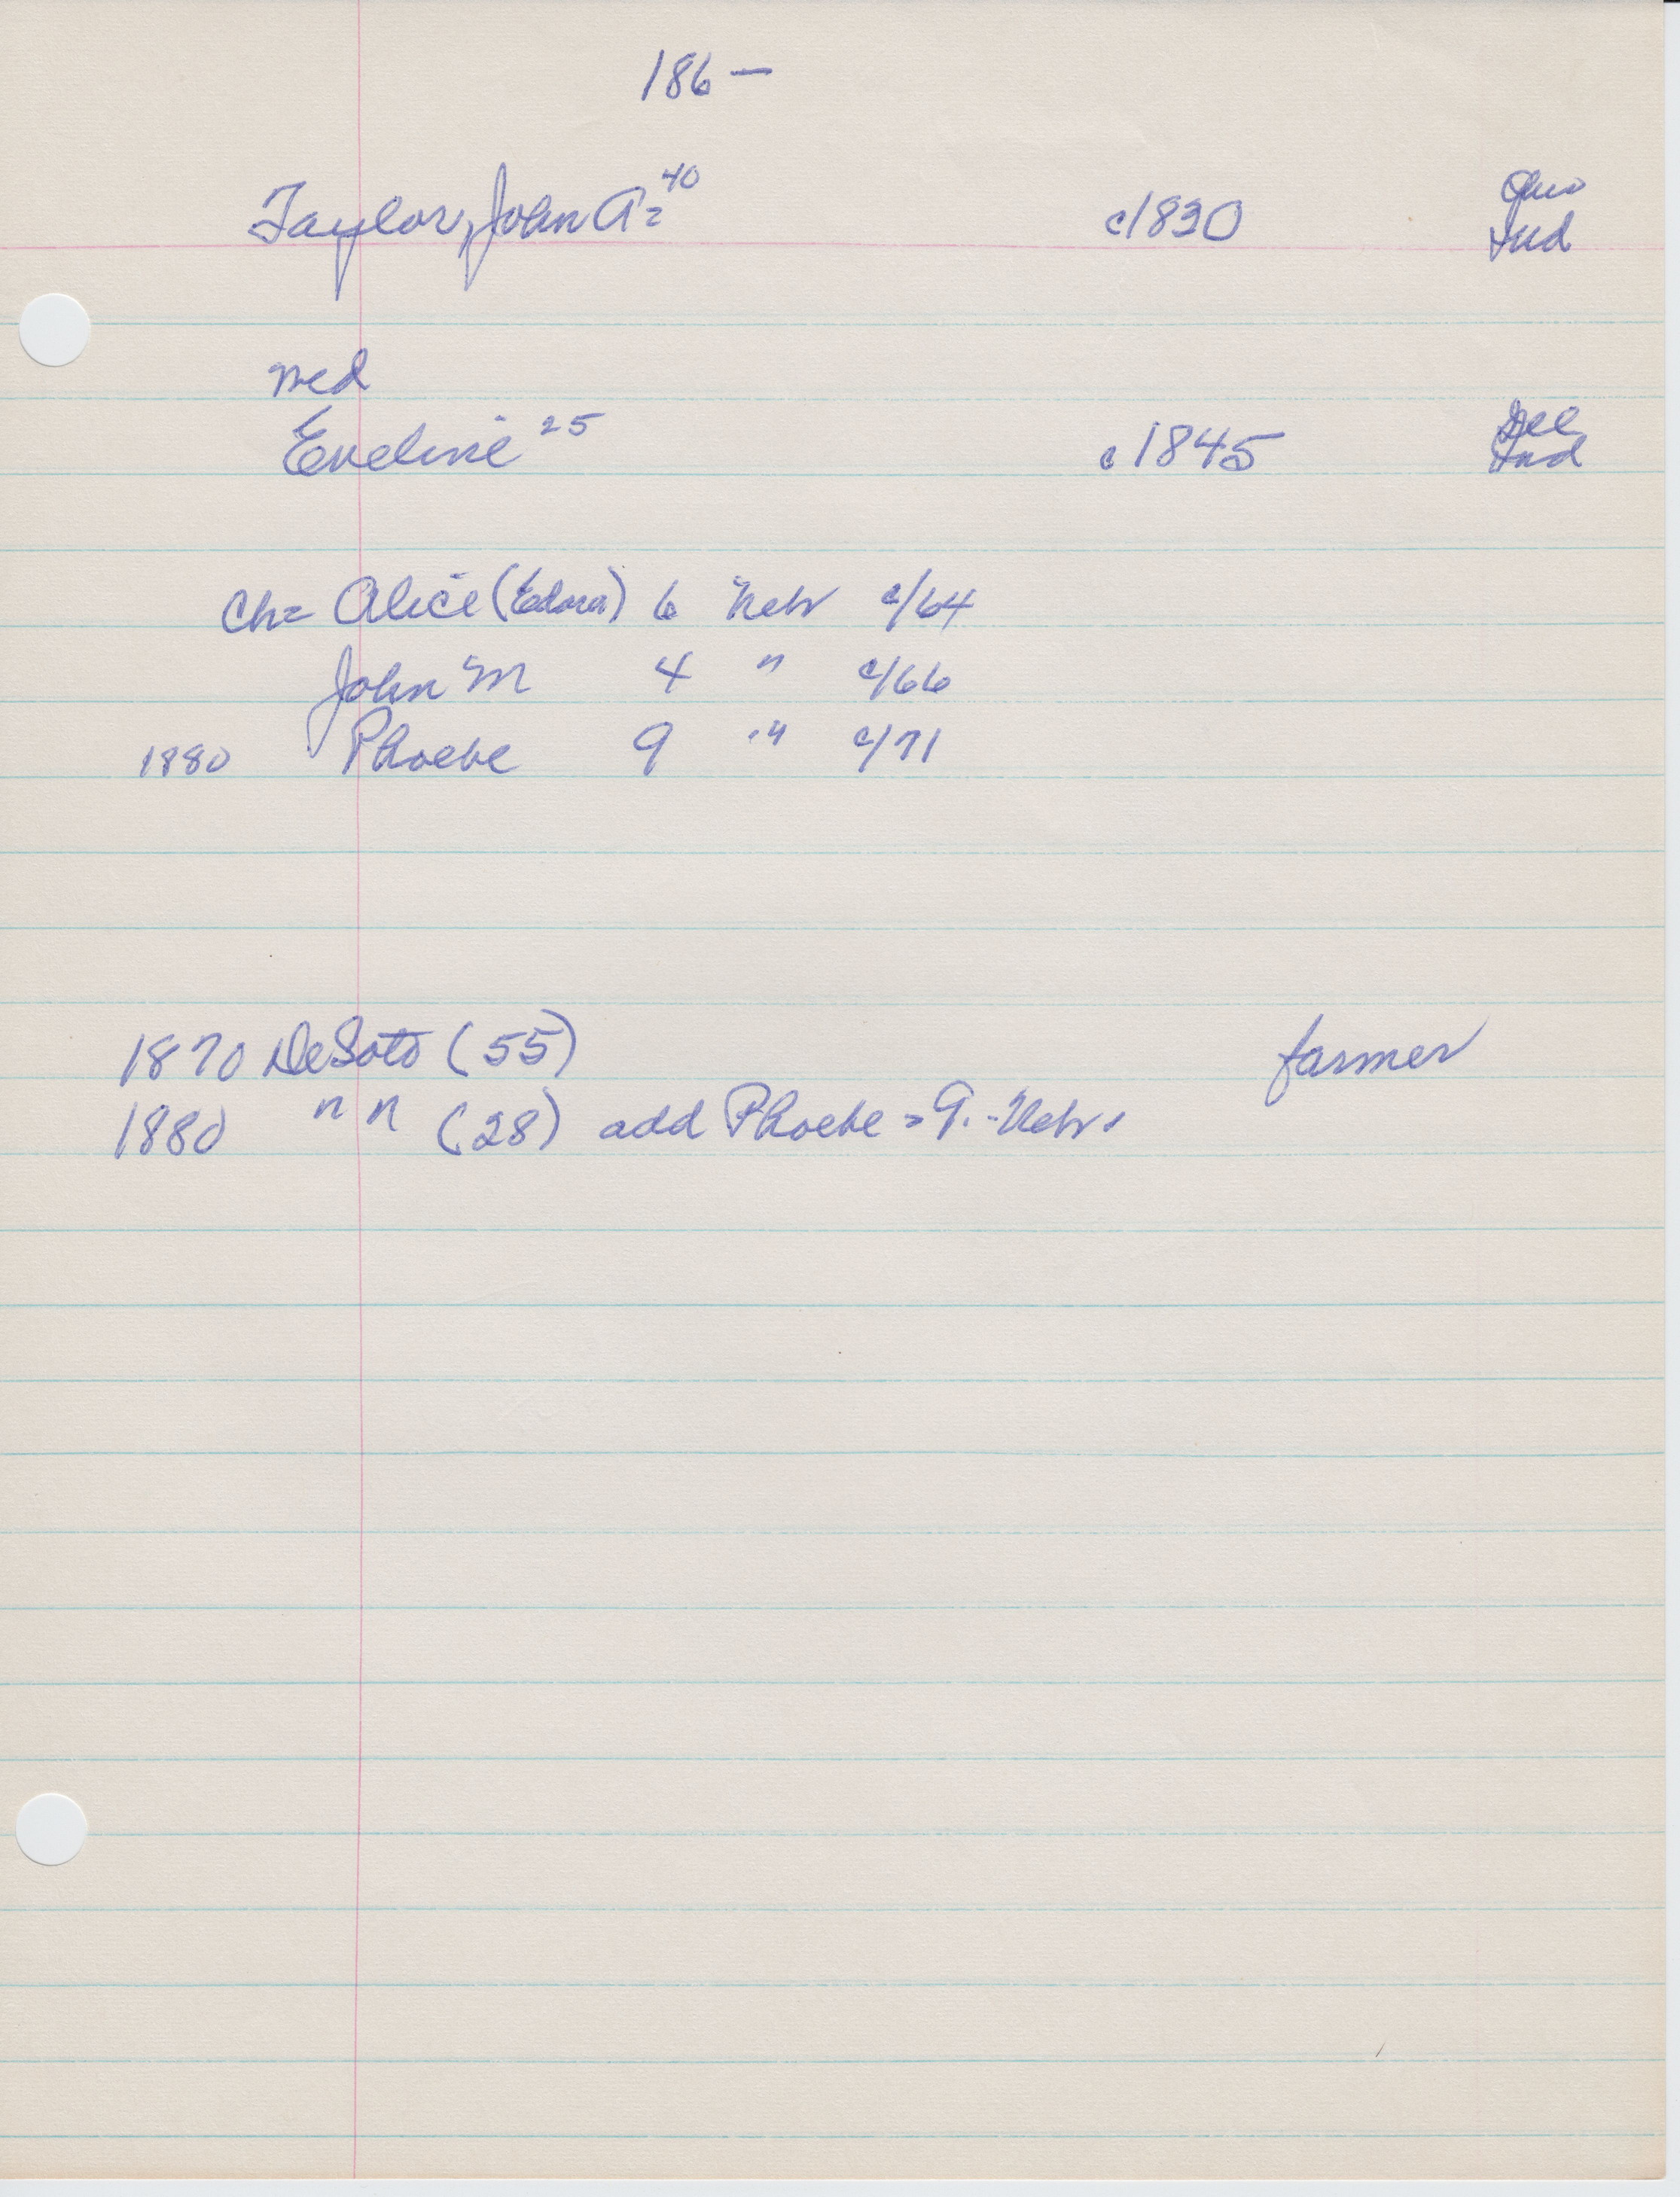 186—
Taylor, John A= 40 c1830 Ohio
Ind
med
Eveline 25 c1845 Ill
Ind
Ch= Alice (Edora) 6 Nebr c/64
John M 4 " c/66
1880 Phoebe 9 " c/71
1870 DeSoto (55) farmer
1880 " " (28) add Phoebe = 9. - Nebr.